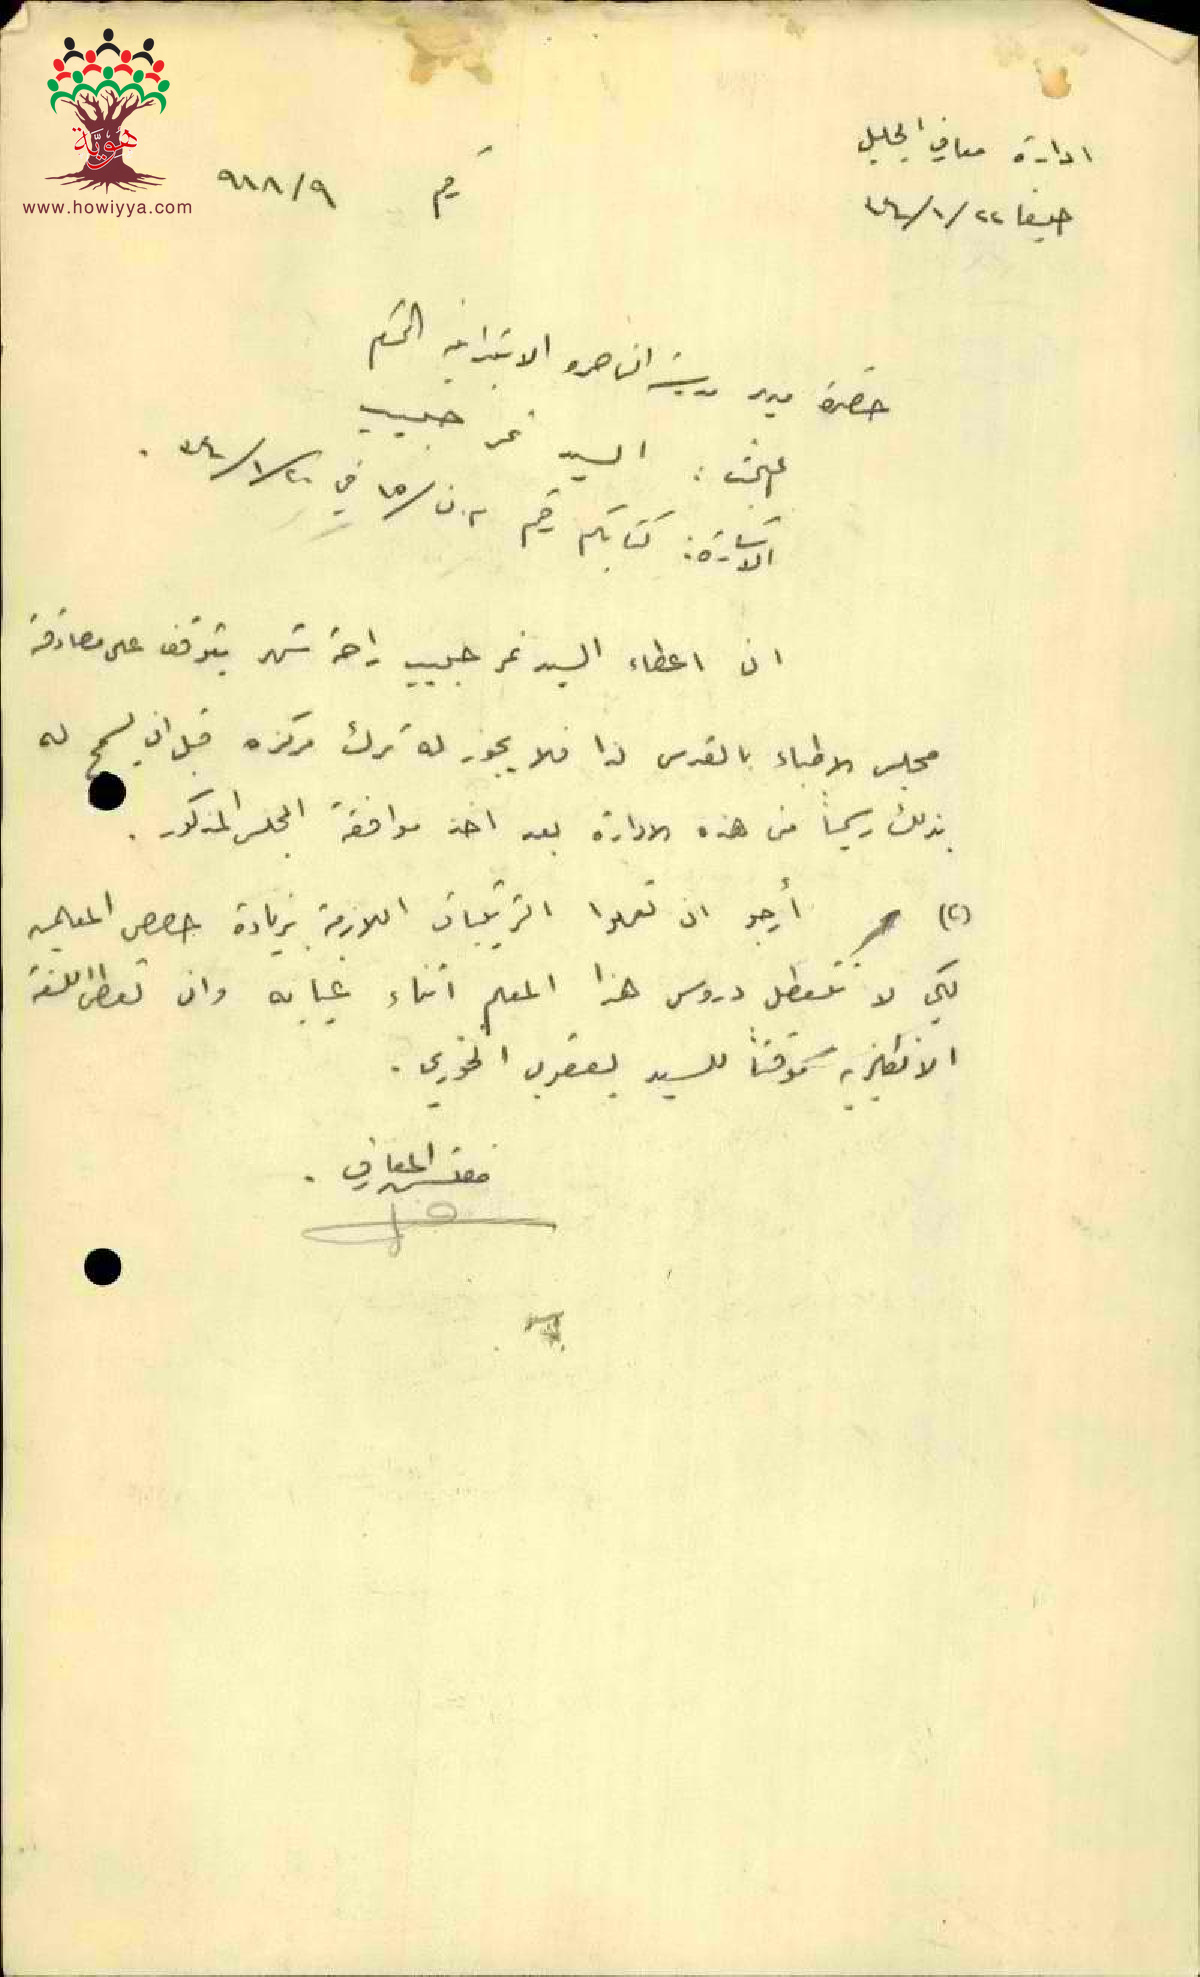 هوية
www.howiyya.com
ادارة معارف الجليل
رقم ٩٨٨/٩
حيفا ٢٢/١/
حضرة مدير مدرسة الناصرة الابتدائية المحترم
المبحث: السيد نمر حبيب
الاشارة: كتابكم رقم م.ن/١٥ في ٢٠/١/ .
ان اعطاء السيد نمر حبيب راحة شهر يتوقف على مصادقة
مجلس الاطباء بالقدس لذا فلا يجوز له ترك مركزه قبل ان يسمح له
بذلك رسمياً من هذه الادارة بعد اخذ موافقة المجلس المذكور .
(٢) أرجو ان تعملوا الترتيبات اللازمة بزيادة حصص المعلمين
لكي لا تتعطل دروس هذا المعلم اثناء غيابه وان تعطى اللغة
الانكليزية موقتاً للسيد يعقوب الخوري .
مفتش المعارف .